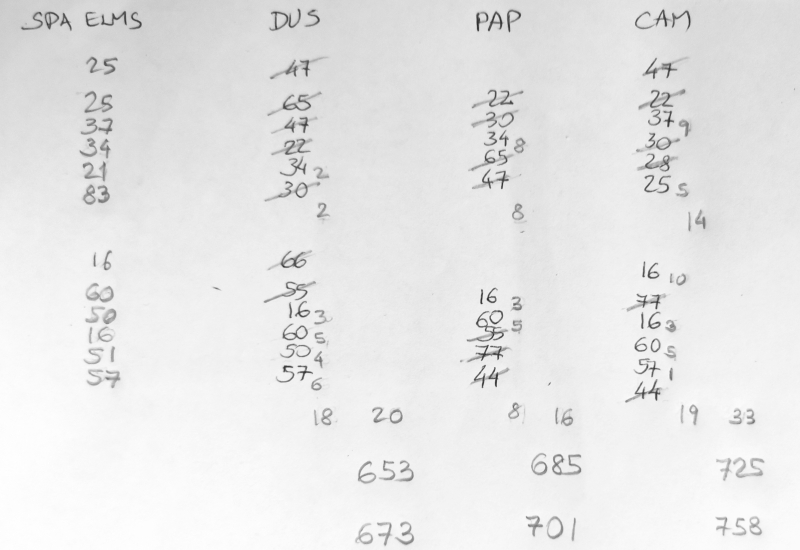 SPA ELMS DUS PAP CAM
25 47 47
25 65 22 22
37 47 30 37 9
34 22 34 8 30
21 34 2 65 28
83 30 47 25 5
2 8 14
16 66 16 10
60 55 16 3 77
50 16 3 60 5 16 3
16 60 5 55 60 5
51 50 4 77 57 1
57 57 6 44 44
18 20 8 16 19 33
653 685 725
673 701 758